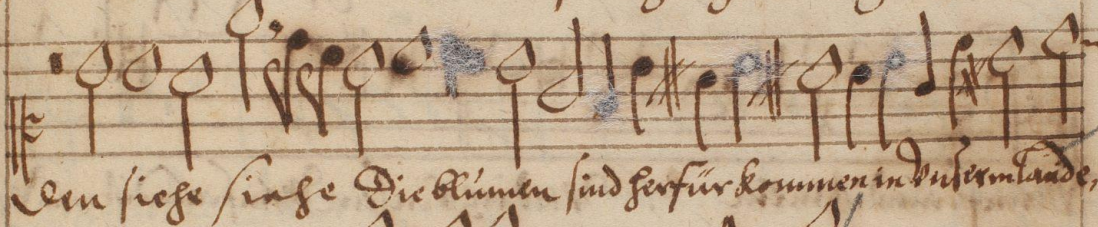 den siehe siehe Die blumen sind herfür kommen in Vnserm lande,